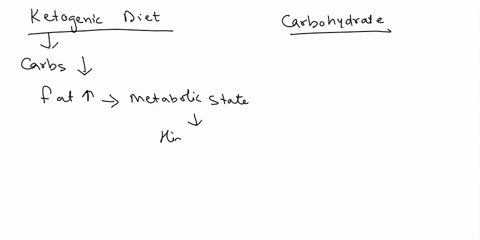 Ketogenic Diet
Carbohydrate
Carbs ↓
fat ↑ → metabolic state
Hi